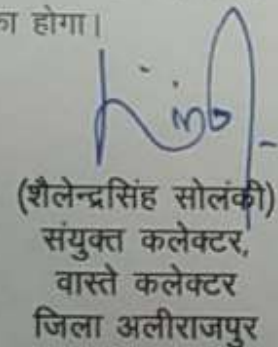 का होगा।
(शैलेन्द्रसिंह सोलंकी)
संयुक्त कलेक्टर,
वास्ते कलेक्टर
जिला अलीराजपुर